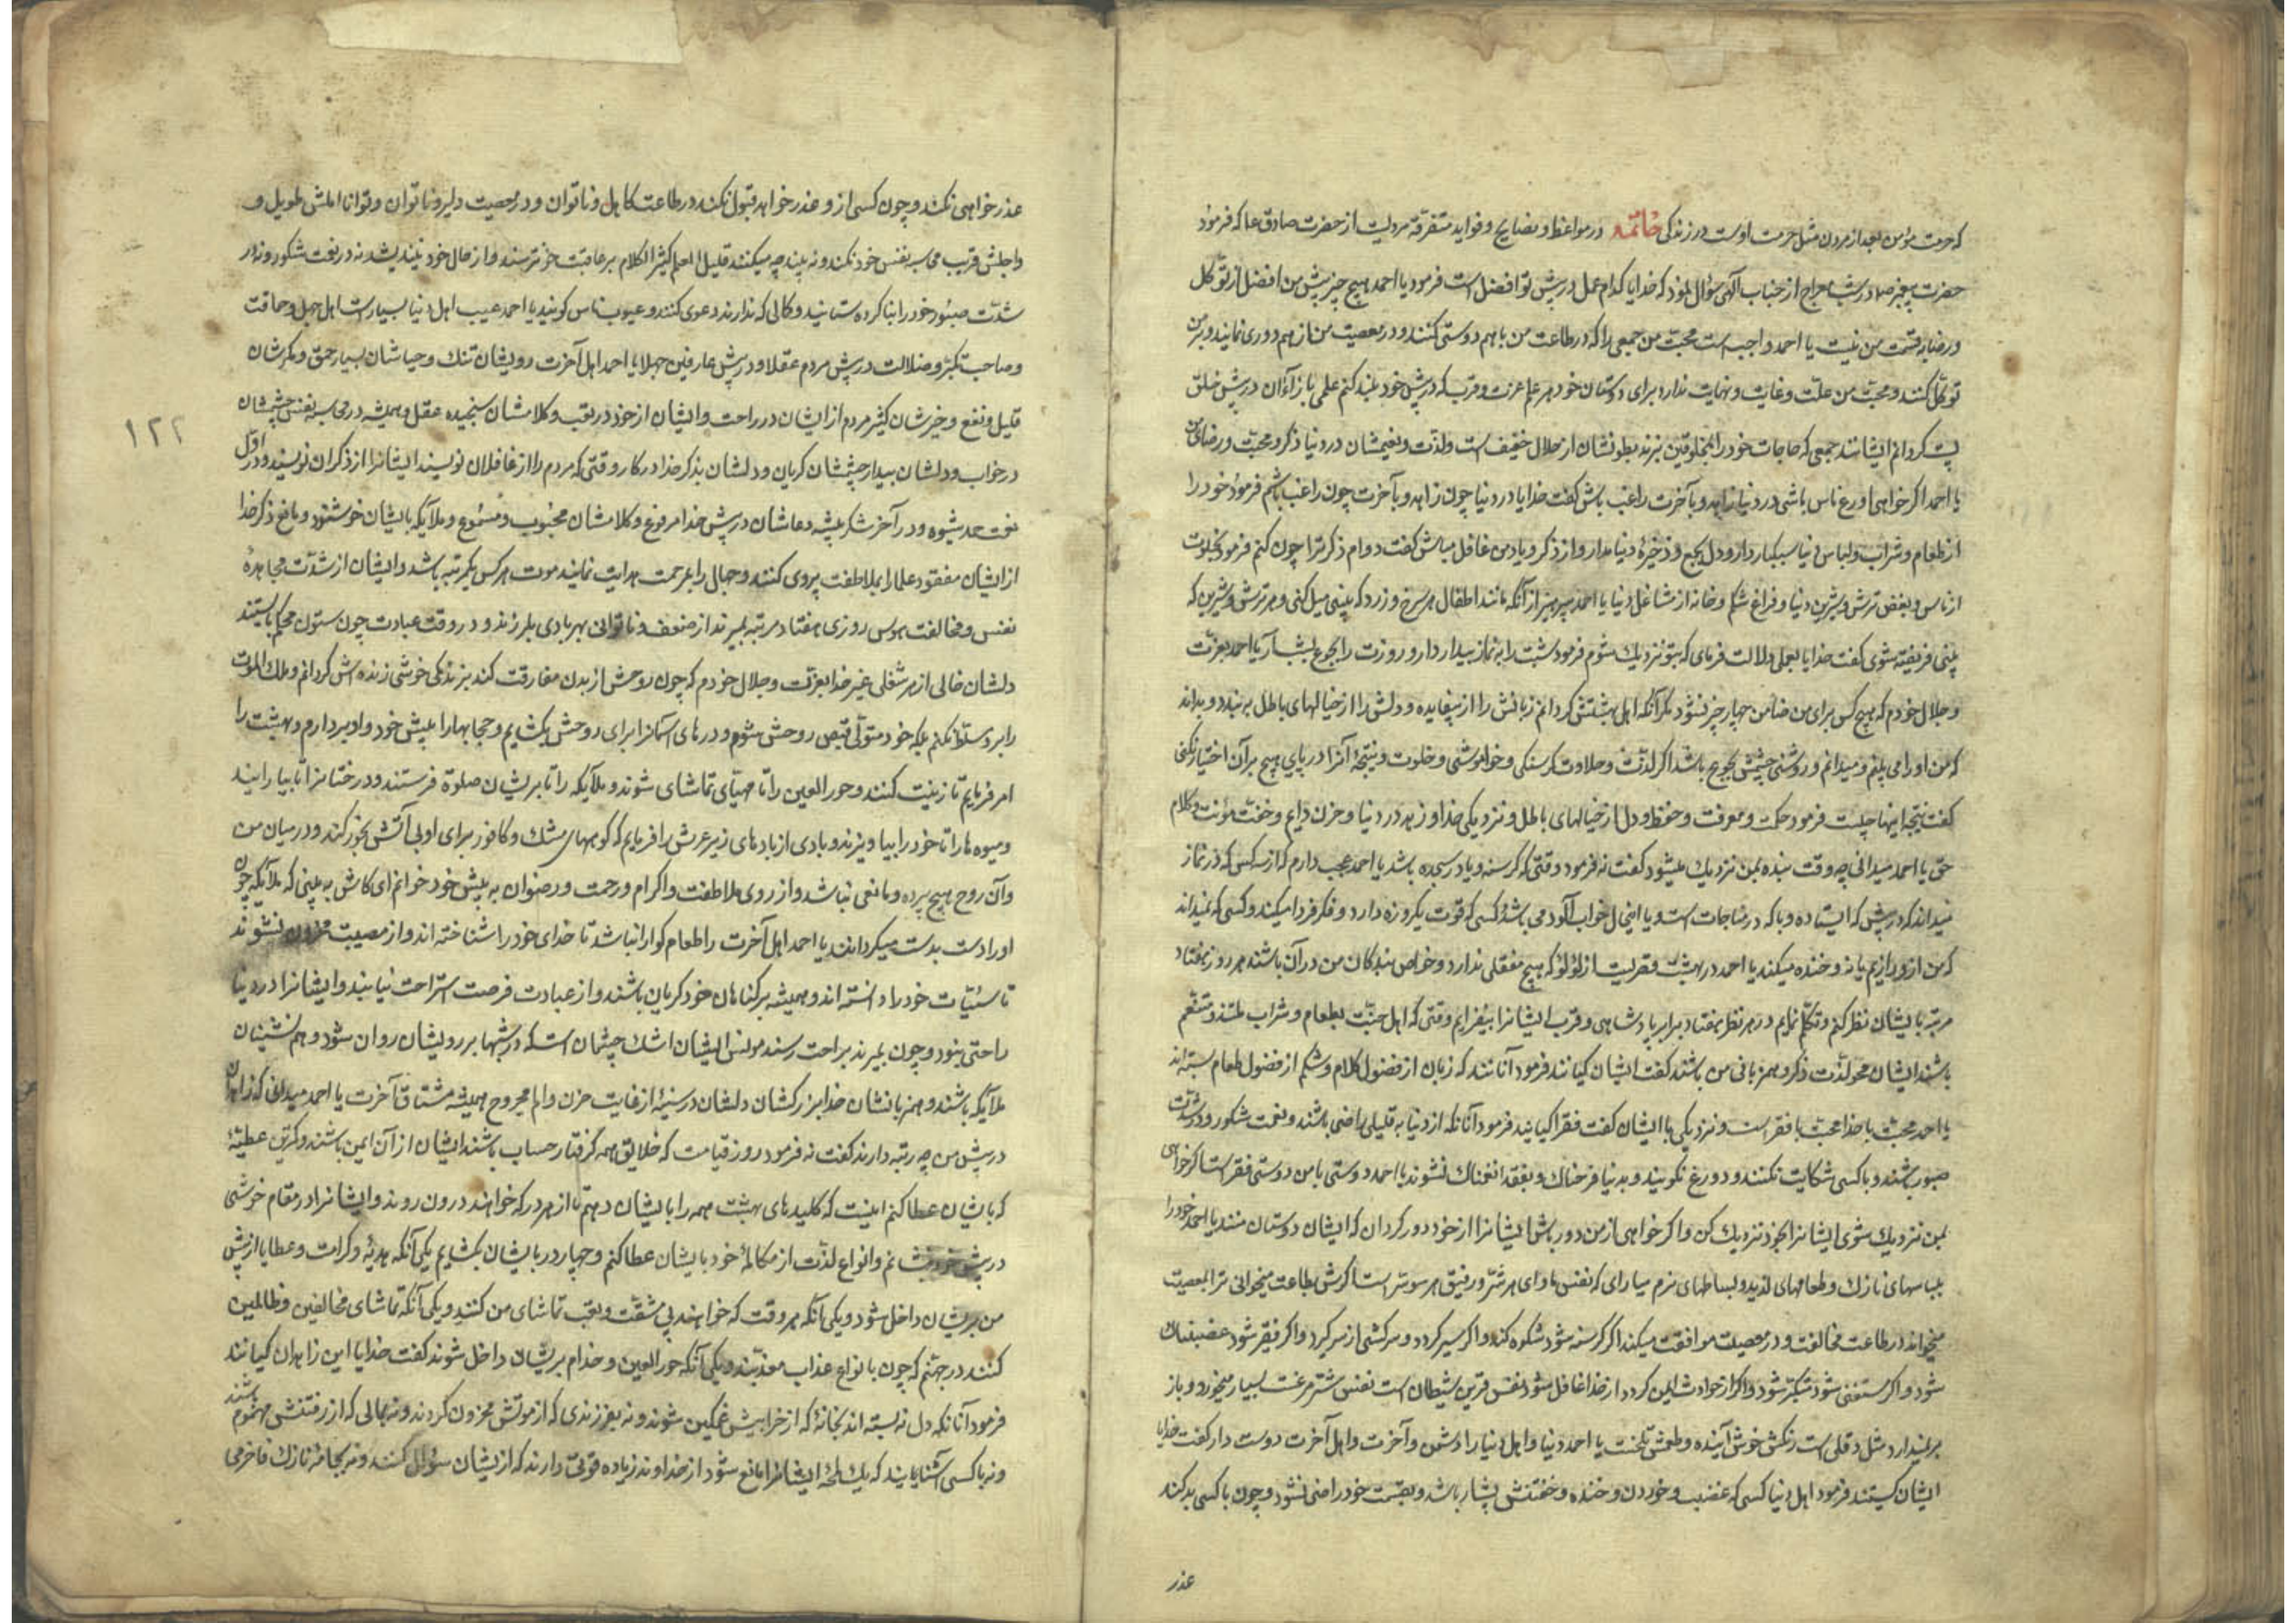 که حرمت مؤمن بعد از مردن مثل حرمت اوست در زندگی خاتمه در مواعظ و نصایح و فواید متفرقه مرویست از حضرت صادق ع که فرمود
حضرت پیغمبر ص در شب معراج از جناب الهی سؤال نمود که خدایا کدام عمل در پیش تو افضل است فرمود یا احمد هیچ چیز پیش من افضل از توکل
و رضا به قسمت من نیست یا احمد واجب است محبت من جمعی را که در طاعت من با هم دوستی کنند و در معصیت من از هم دوری نمایند و بر من
توکل کنند و محبت من علت و غایت و نهایت ندارد برای دوستان خود هر علم عزت و قرب که در پیش خود بلند کنم علمی بازاء آن در پیش خلق
پست کردانم ایشانند جمعی که حاجات خود را بمخلوقین نبرند بطونشان از حلال خفیف است و لذت و نعیمشان در دنیا ذکر و محبت و رضای من
یا احمد اکر خواهی اورع ناس باشی در دنیا زاهد و بآخرت راغب باش کفت خدایا در دنیا چون زاهد و بآخرت چون راغب باشم فرمود خود را
از طعام و شراب و لباس دنیا سبکبار دار و دل بجمع و ذخیرهٔ دنیا مدار و از ذکر و یاد من غافل مباش کفت دوام ذکر ترا چون کنم فرمود بخلوت
از ناس و بغض ترش و شیرین دنیا و فراغ شکم و خانه از مشاغل دنیا یا احمد بپرهیز از آنکه مانند اطفال هر سرخ و زرد که بینی میل کنی و هر ترش و شیرین که
بینی فریفته شوی کفت خدایا بعملی دلالت فرمای که بتو نزدیک شوم فرمود شبت را به نماز بیدار دار و روزت را بجوع بشب آر یا احمد بعزت
و جلال خودم که هیچ کس برای من ضامن چهار چیز نشود مکر آنکه اهل بهشتش کردانم زبانش را از بیفایده و دلش را از خیالهای باطل به بندد و بداند
که من او را می بینم و میدانم و روشنی چشمش بجوع باشد اکر لذت و حلاوت کرسنکی و خاموشی و خلوت و نتیجهٔ آنرا دریابی هیچ بر آن اختیار نکنی
کفت نتیجه اینها چیست فرمود حکمت و معرفت و حفظ دل از خیالهای باطل و نزدیکی خدا و زهد در دنیا و حزن دایم و خفت مؤنت و کلام
حق یا احمد میدانی چه وقت بنده بمن نزدیک میشود کفت نه فرمود وقتی که کرسنه و یا در سجده باشد یا احمد عجب دارم که از سه کس که در نماز
میداند که در پیش که ایستاده و با که در مناجات است و با اینحال خواب آلود می باشد و کسی که قوت یکروزه دارد و فکر فردا میکند و کسی که نمیداند
که من ازو راضیم یا نه و خنده میکند یا احمد در بهشت قصریست از لؤلؤ که هیچ مفصلی ندارد و خواص بندکان من در آن باشند هر روز هفتاد
مرتبه بایشان نظر کنم و تکلم نمایم در هر نظر هفتاد برابر پادشاهی و قرب ایشانرا بیفزایم وقتی که اهل جنت بطعام و شراب ملتذ و متنعم
باشند ایشان محو لذت ذکر و همزبانی من باشند کفت ایشان کیانند فرمود آنانند که زبان از فضول کلام و شکم از فضول طعام بسته اند
یا احمد محبت با خدا محبت با فقر است و نزدیکی با ایشان کفت فقرا کیانند فرمود آنانکه از دنیا به قلیلی راضی باشند و نعمت شکور و در شدت
صبور باشند و با کسی شکایت نکنند و دروغ نکویند و بدنیا فرحناک و بفقد آن غمناک نشوند یا احمد دوستی با من دوستی فقر است اکر خواهی
بمن نزدیک شوی ایشانرا بخود نزدیک کن و اکر خواهی از من دور باش ایشانرا از خود دور کردان که ایشان دوستان منند یا احمد خود را
بلباسهای نازک و طعامهای لذیذ و بساطهای نرم میارای که نفس ماوای هر شر و رفیق هر سوء است اکرش بطاعت میخوانی ترا بمعصیت
میخواند در طاعت مخالفت و در معصیت موافقت میکند اکر کرسنه شود شکوه کند و اکر سیر کردد و سرکشی از سر کیرد و اکر فقیر شود غضبناک
شود و اکر مستغنی شود متکبر شود و اکر از حوادث ایمن کردد از خدا غافل شود نفس قرین شیطان است نفس شتر مرغست بسیار میخورد و بار
بر نمیدارد مثل دفلی است رنکش خوش آینده و طعمش تلخست یا احمد دنیا و اهل دنیا را دشمن و آخرت و اهل آخرت دوست دار کفت خدایا
ایشان کیستند فرمود اهل دنیا کسی که غضب و خوردن و خنده و خفتنش بسیار باشد و بقسمت خود راضی نشود و چون با کسی بد کند
عذر
عذر خواهی نکند و چون کسی ازو عذر خواهد قبول نکند در طاعت کاهل و ناتوان و در معصیت دلیر و توانا املش طویل و
و اجلش قریب محاسبه نفس خود نکند و نه بیند چه میکند قلیل العلم کثیر الکلام بر عاقبت خود نترسند و از حال خود نیندیشد نه در نعمت شکور و نه در
شدت صبور خود را بناکرده ستانید و کمالی که ندارند دعوی کنند و عیوب ناس کویند یا احمد عیب اهل دنیا بسیار است اهل جهل و حماقت
و صاحب تکبر و ضلالت در پیش مردم عقلا و در پیش عارفین جهلا یا احمد اهل آخرت رویشان تنک و حیاشان بسیار حمق و مکرشان
قلیل و نفع و خیرشان کثیر مردم از ایشان در راحت و ایشان از خود در تعب و کلامشان سنجیده عقل و همیشه در محاسبه نفس چشمشان
۱۲۲
در خواب و دلشان بیدار چشمشان کریان و دلشان بذکر خدا در کار وقتی که مردم را از غافلان نویسند ایشانرا از ذکران نویسند و در اول
نعمت حمد شیوه و در آخر شکر پیشه دعاشان در پیش خدا مرفوع و کلامشان محبوب و مسموع و ملایکه بایشان خوشنود و مانع ذکر خدا
از ایشان مفقود علما را بملاطفت پیروی کنند و جهال را بمرحمت هدایت نمایند موت هر کس یکمرتبه باشد و ایشان از شدت مجاهدهٔ
نفس و مخالفت هوس روزی هفتاد مرتبه بمیرند از ضعف و ناتوانی بهر بادی بلرزند و در وقت عبادت چون ستون محکم بایستند
دلشان خالی از هر شغلی غیر خدا بعزت و جلال خودم که چون روحش از بدن مفارقت کند بزندکی خوشی زنده اش کردانم و ملک الموت
را برو مسلط نکنم بلکه خود متولی قبض روحش شوم و درهای آسمانرا برای روحش بکشایم و حجابها را به پیش خود و او بردارم و بهشت را
امر فرمایم تا زینت کنند و حور العین را تا مهیای تماشای شوند و ملایکه را تا بر ایشان صلوة فرستند و درختانرا تا بپیرایند
و میوه ها را تا خود را بیاویزند و بادی از بادهای زیر عرش را فرمایم که کوههای مشک و کافور برای او بی آتش بخور کند و در میان من
و آن روح هیچ پرده و مانعی نباشد و از روی ملاطفت و اکرام و رحمت و رضوان به پیش خود خوانم ای کاش به بینی که ملایکه چون
او را دست بدست میکردانند یا احمد اهل آخرت را طعام کوارا نباشد تا خدای خود را شناخته اند و از مصیبت محزون نشوند
تا سیئات خود را دانسته اند و همیشه بر کناهان خود کریان باشند و از عبادت فرصت استراحت نیابند و ایشانرا در دنیا
راحتی نبود و چون بمیرند براحت رسند مونس ایشان اشک چشمان است که در شبها بر رویشان روان شود و هم نشینان
ملایکه باشند و همزبانشان خدا بزرکشان دلشان در سینه از غایت حزن و الم مجروح همیشه مشتاق آخرت یا احمد میدانی که زاهدان
در پیش من چه رتبه دارند کفت نه فرمود روز قیامت که خلایق همه کرفتار حساب باشند ایشان از آن ایمن باشند و کمترین عطیهٔ
که بایشان عطا کنم اینست که کلیدهای بهشت همه را بایشان دهم تا از هر در که خواهند درون روند و ایشانرا در مقام خوشی
در پیش خود بنشانم و انواع لذت از مکالمهٔ خود بایشان عطا کنم و چهار در بایشان بکشایم یکی آنکه هدیه و کرامت و عطایا از پیش
من بر ایشان داخل شود و یکی آنکه هر وقت که خواهند بی مشقت و تعب تماشای من کنند و یکی آنکه تماشای مخالفین و ظالمین
کنند در جهنم که چون بانواع عذاب معذبند و یکی آنکه حور العین و خدام بر ایشان داخل شوند کفت خدایا این زاهدان کیانند
فرمود آنانکه دل نه بسته اند بخانهٔ که از خرابیش غمکین شوند و نه بفرزندی که از موتش محزون کردند و نه بمالی که از رفتنش مهموم باشند
و نه با کسی آشنایند که یک لمحه ایشانرا مانع شود از خداوند زیاده قوتی دارند که از ایشان سؤال کنند و نه بجامهٔ نازک فاخر می